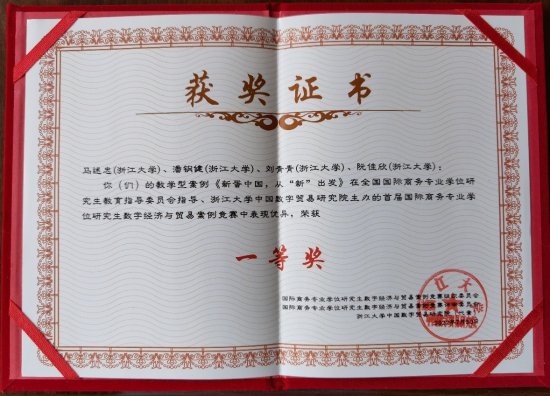 获奖证书
马述忠(浙江大学)、潘钢健(浙江大学)、刘青青(浙江大学)、阮佳欣(浙江大学)：
你（们）的教学型案例《新晋中国，从“新”出发》在全国国际商务专业学位研
究生教育指导委员会指导、浙江大学中国数字贸易研究院主办的首届国际商务专业学
位研究生数字经济与贸易案例竞赛中表现优异，荣获
一等奖
国际商务专业学位研究生数字经济与贸易案例竞赛组织委员会
国际商务专业学位研究生数字经济与贸易案例竞赛
浙江大学中国数字贸易研究院